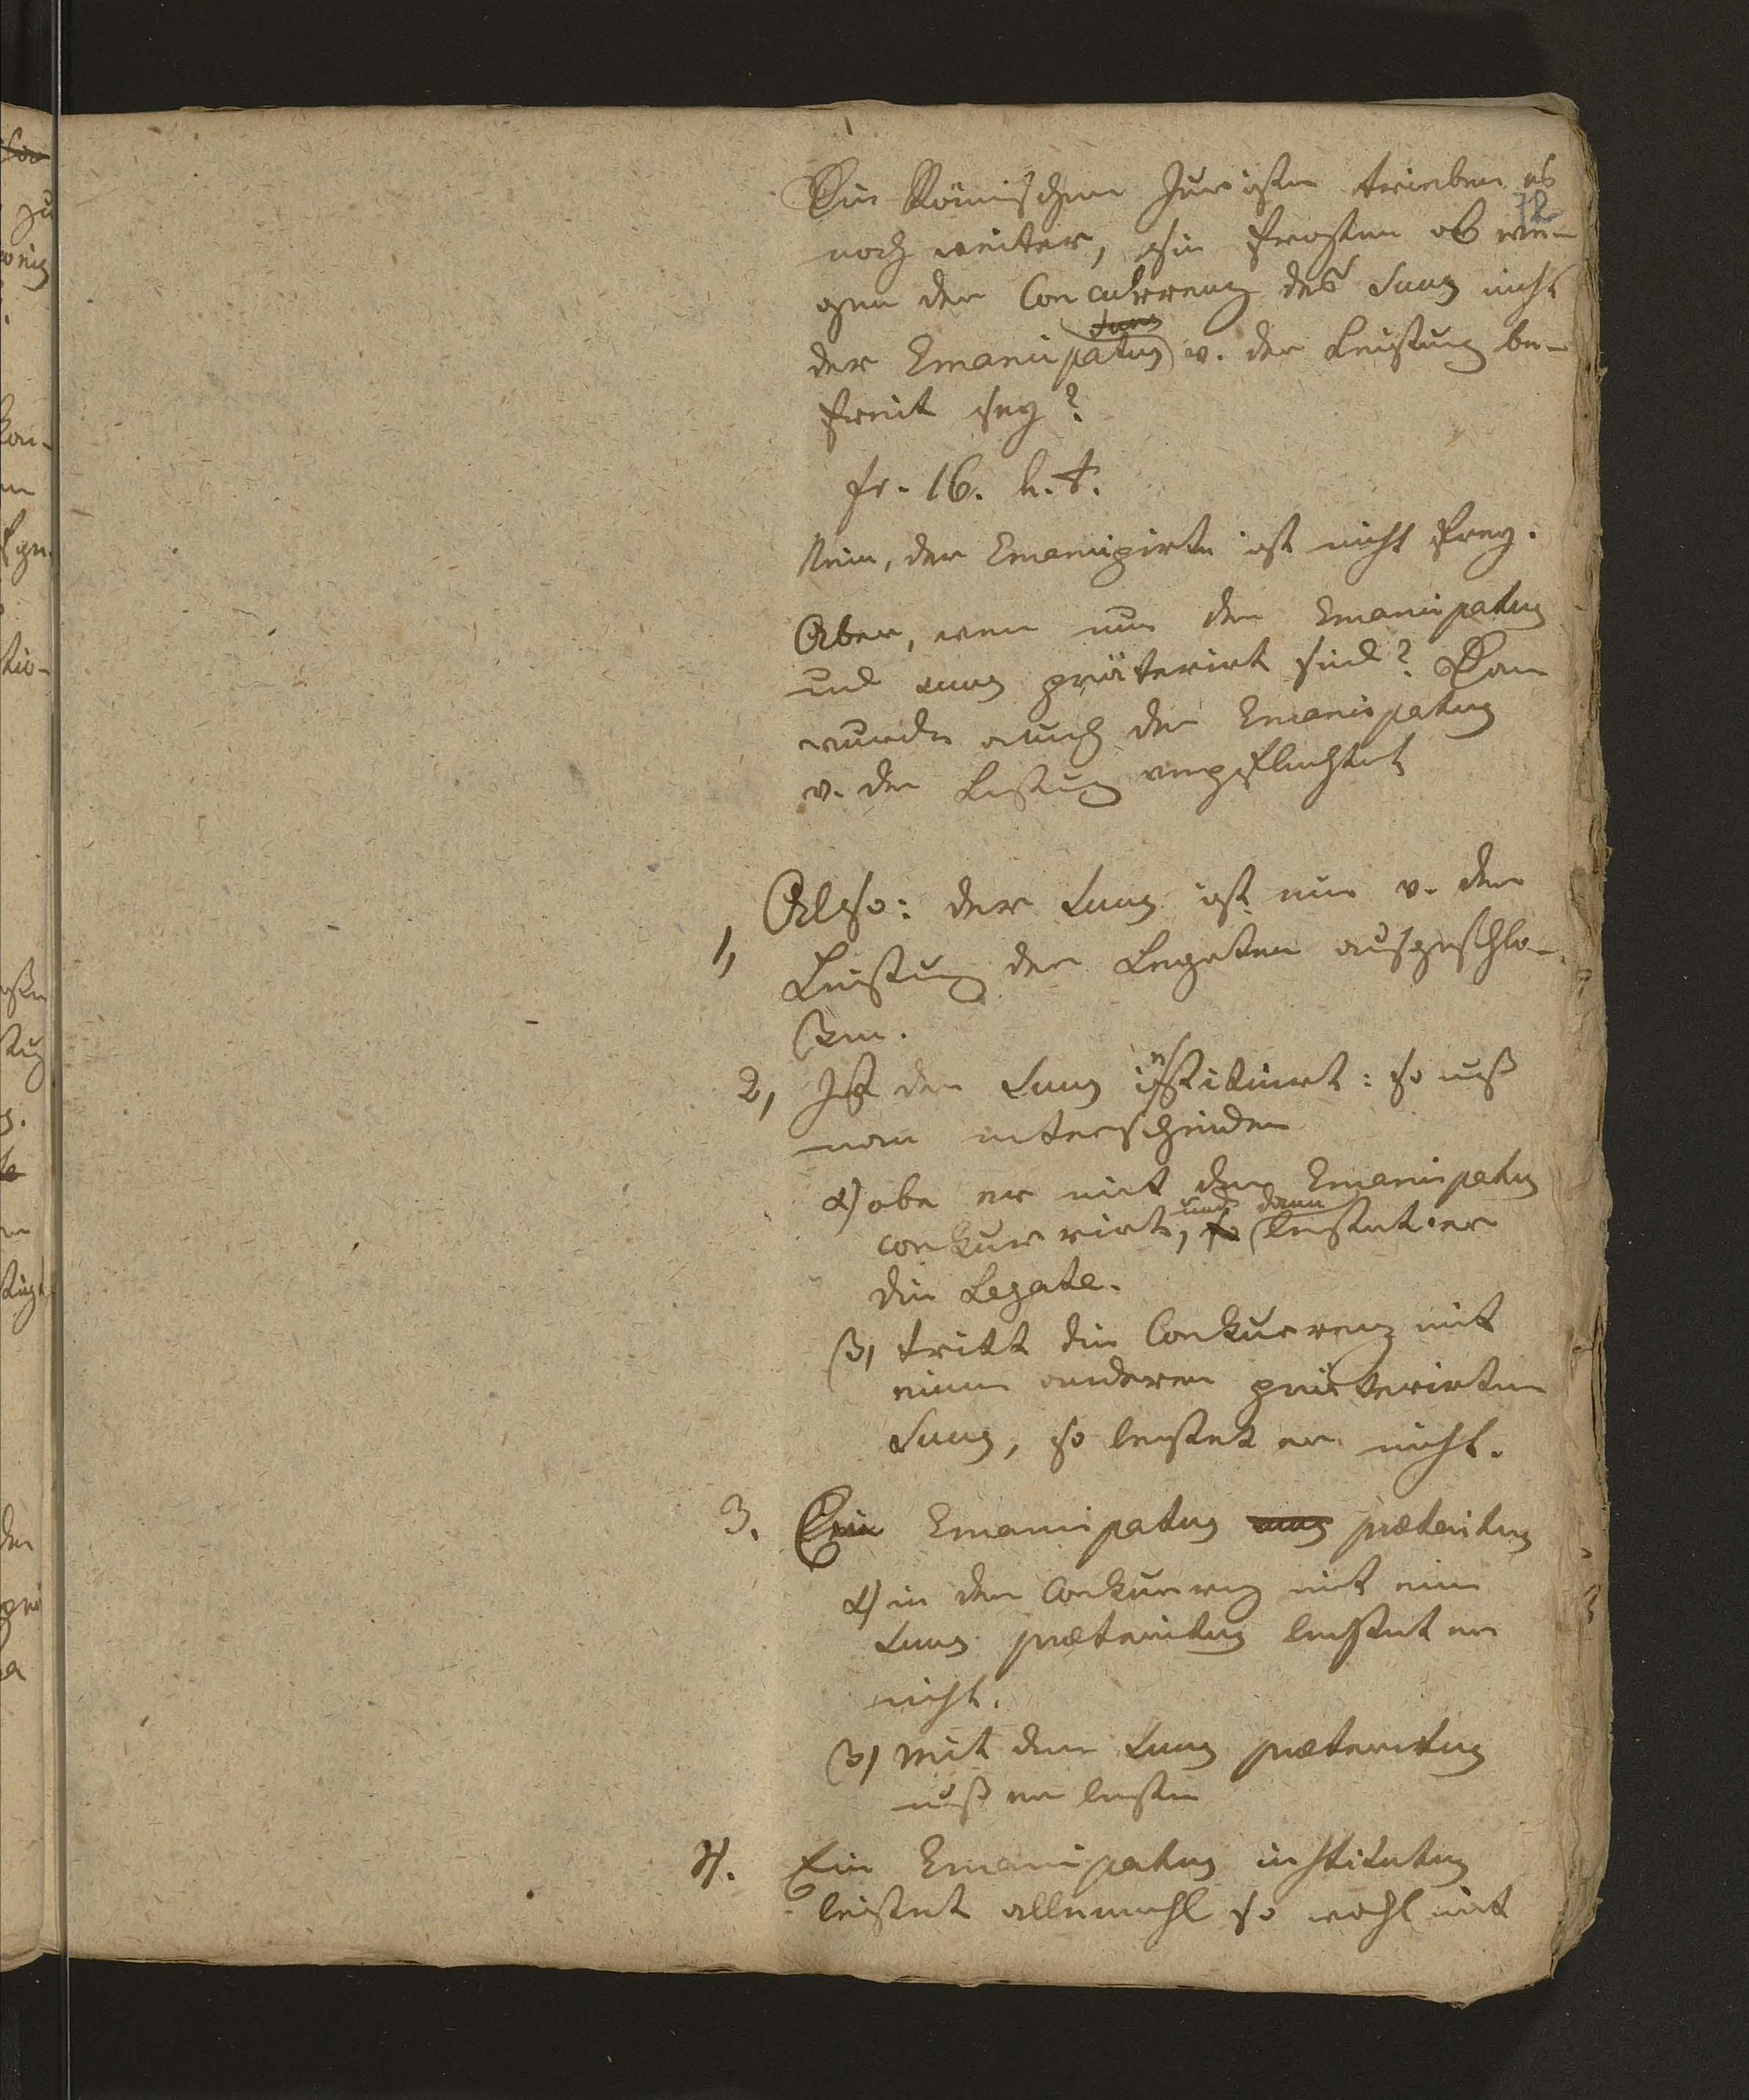 Die Römischen Juristen trieben es
72
noch weiter, sie fragten ob we-
gen der Concurrenz des Suus nicht
der Emancipatus v. der Leistung be-
freit sey?
fr. 16. h. t.
Nein, der Emancipirte ist nicht frey.
Aber, wenn nun der Emancipatus
und suus präterirt sind? Dann
wurde auch der Emancipatus
v. der Leistung verpflichtet
Also: der Suus ist nun v. der
1,
Leistung der Legaten ausgeschlo-
ssen.
2, Ist der Suus instituirt: so muß
man unterscheiden
α) ob er mit dem Emancipatus
und dann
conkurrirt, so leistet er
die Legate.
β, tritt die Conkurrenz mit
einem anderen präterirten
Suus, so leistet er nicht.
3. Ein Emancipatus præteritus
α) in der Conkurrenz mit einem
Suus præteritus leistet er
nicht.
β, mit dem Suus præteritus
muß er leisten
4. Ein Emancipatus institutus
leistet allemahl so wohl mit